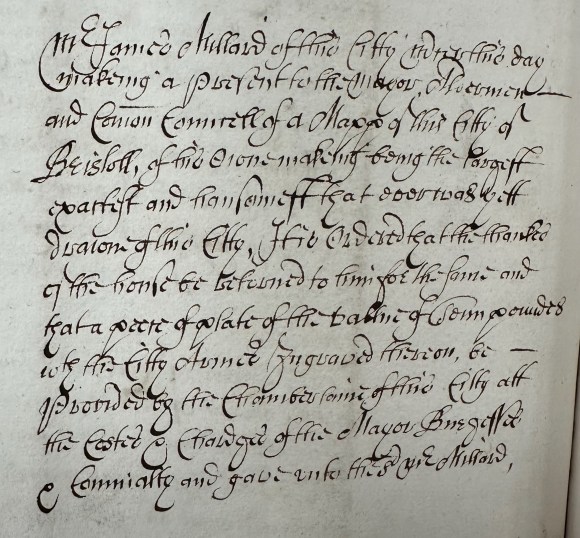 Mr James Millard of this Citty this day
makeing a Present to the Mayor, Aldermen
and Comon Councell of a Mapp of this Citty of
Bristoll, of his Owne makeing being the largest
exactest and hansomest that ever was yett
drawne of this Citty, It is Ordered that the thankes
of the house be returned to him for the same and
that a peece of plate of the vallue of Tenn poundes
wth the Citty Armes Ingraved thereon, be
Provided by the Chamberlaine of this Citty att
the Costes & Chardges of the Mayor Burgesses
& Comialty and gave unto the sd Mr Millard,